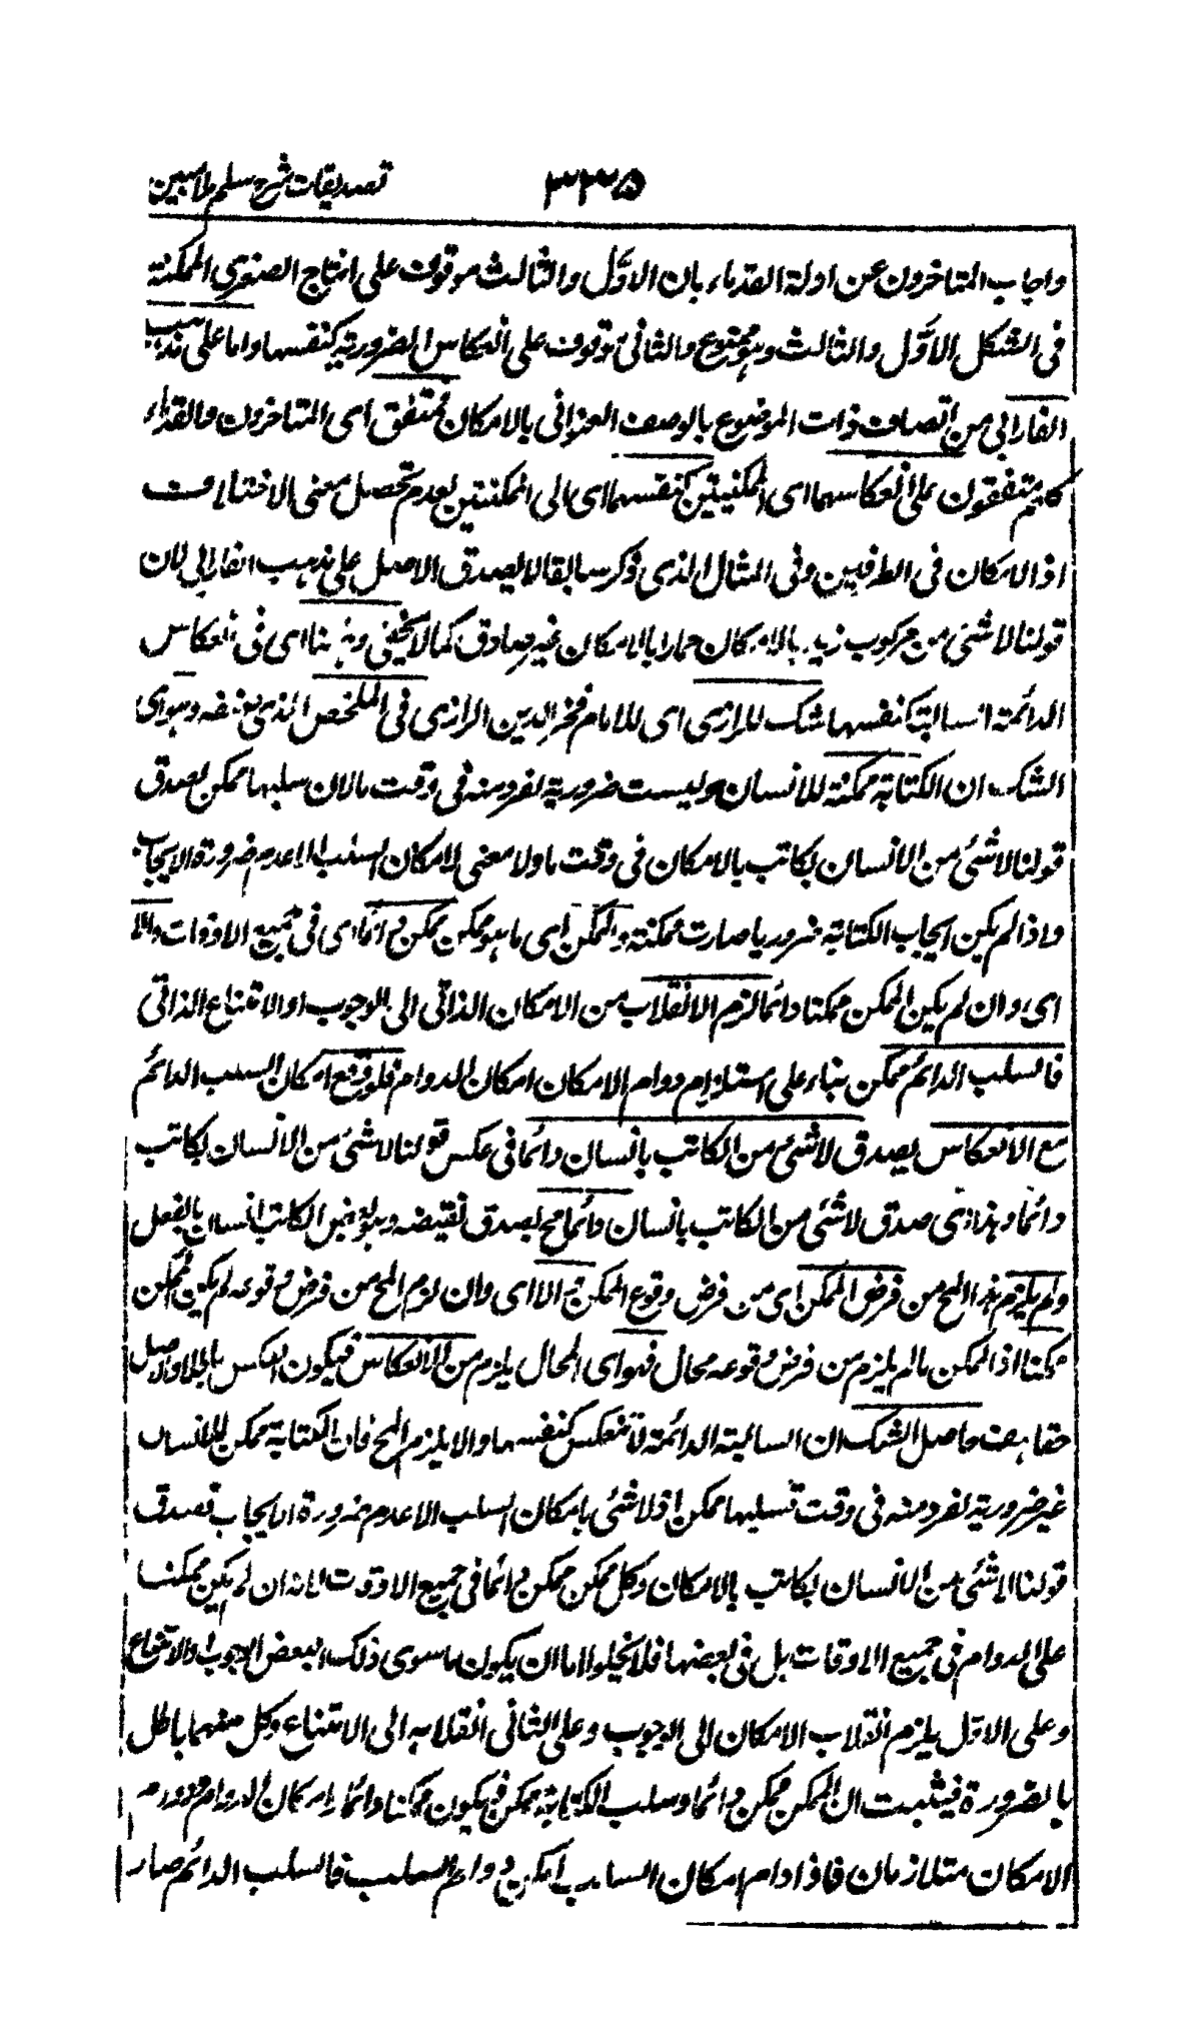 تصديقات شرح سلم ملا مبين ٣٣٥
واجاب المتاخرون عن ادلة القدماء بان الاوَّل والثالث موقوف على انتاج الصغرى الممكنة
فى الشكل الاوَّل والثالث وهو ممنوع والثانى موقوف على انعكاس الضرورية كنفسها واما على مذهب
الفارابى من اتصاف ذات الموضوع بالوصف العنوانى بالامكان فمتفق اى المتاخرون والقدماء
كلهم متفقون على انعكاسهما اى الممكنيتين كنفسهما اى الى الممكنتين لعدم تحصل معنى الاختلاف
اذ الامكان فى الطرفين وفى المثال الذى ذكر سابقا لا يصدق الاصل على مذهب الفارابى لان
قولنا لا شئ من مركوب زيد بالامكان حمار بالامكان غير صادق كما لا يخفى وههنا اى فى انعكاس
الدائمة السالبة كنفسها شك للرازى اى للامام فخر الدين الرازى فى الملخص الذى صنفه وهو اى
الشك ان الكتابة ممكنة للانسان وليست ضرورية لفرد منه فى وقت ما لان سلبها ممكن لصدق
قولنا لا شئ من الانسان بكاتب بالامكان فى وقت ما ولا معنى لامكان السلب الا عدم ضرورة الايجاب
واذا لم يكن ايجاب الكتابة ضروريا صارت ممكنة والممكن اى ما هو ممكن ممكن دائما اى فى جميع الاوقات والا
اى وان لم يكن الممكن ممكنا دائما لزم الانقلاب من الامكان الذاتى الى الوجوب او الامتناع الذاتى
فالسلب الدائم ممكن بناء على استلزام دوام الامكان امكان الدوام فلو وقع امكان السلب الدائم
مع الانعكاس يصدق لا شئ من الكاتب بانسان دائما فى عكس قولنا لا شئ من الانسان بكاتب
دائما وهذا اى صدق لا شئ من الكاتب بانسان دائما مح لصدق نقيضه وهو بعض الكاتب انسان بالفعل
ولم يلزم هذا المح من فرض الممكن اى من فرض وقوع الممكن والا اى وان لزم المح من فرض وقوعه لم يكن الممكن
ممكنا اذ الممكن ما لم يلزم من فرض وقوعه محال فهو اى المحال يلزم من الانعكاس فيكون العكس باطلا والاصل
حقا هف حاصل الشك ان السالبة الدائمة لا تنعكس كنفسها والا يلزم المح فان الكتابة ممكن للانسان
غير ضرورية لفرد منه فى وقت فسلبها ممكن اذ لا شئ بامكان السلب الا عدم ضرورة الايجاب فصدق
قولنا لا شئ من الانسان بكاتب بالامكان وكل ممكن ممكن دائما فى جميع الاوقات لانه ان لم يكن ممكنا
على الدوام فى جميع الاوقات بل فى بعضها فلا يخلو اما ان يكون ما سوى ذلك البعض الوجوب او الامتناع
وعلى الاول يلزم انقلاب الامكان الى الوجوب وعلى الثانى انقلابه الى الامتناع وكل منهما باطل
بالضرورة فيثبت ان الممكن ممكن دائما وسلب الكتابة ممكن فيكون ممكنا دائما وامكان الدوام ودوام
الامكان متلازمان فاذا دام امكان السلب امكن دوام السلب فالسلب الدائم صار